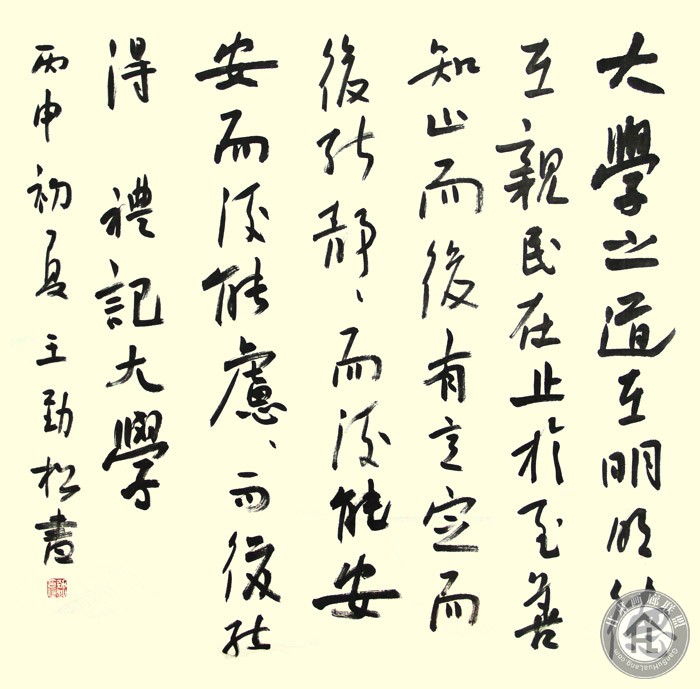 大學之道在明明德
在親民在止於至善
知止而後有定定而
後能靜、而後能安
安而後能慮、而後能
得 禮記大學
丙申初夏 王勤松書
GanSuHuaLang.com